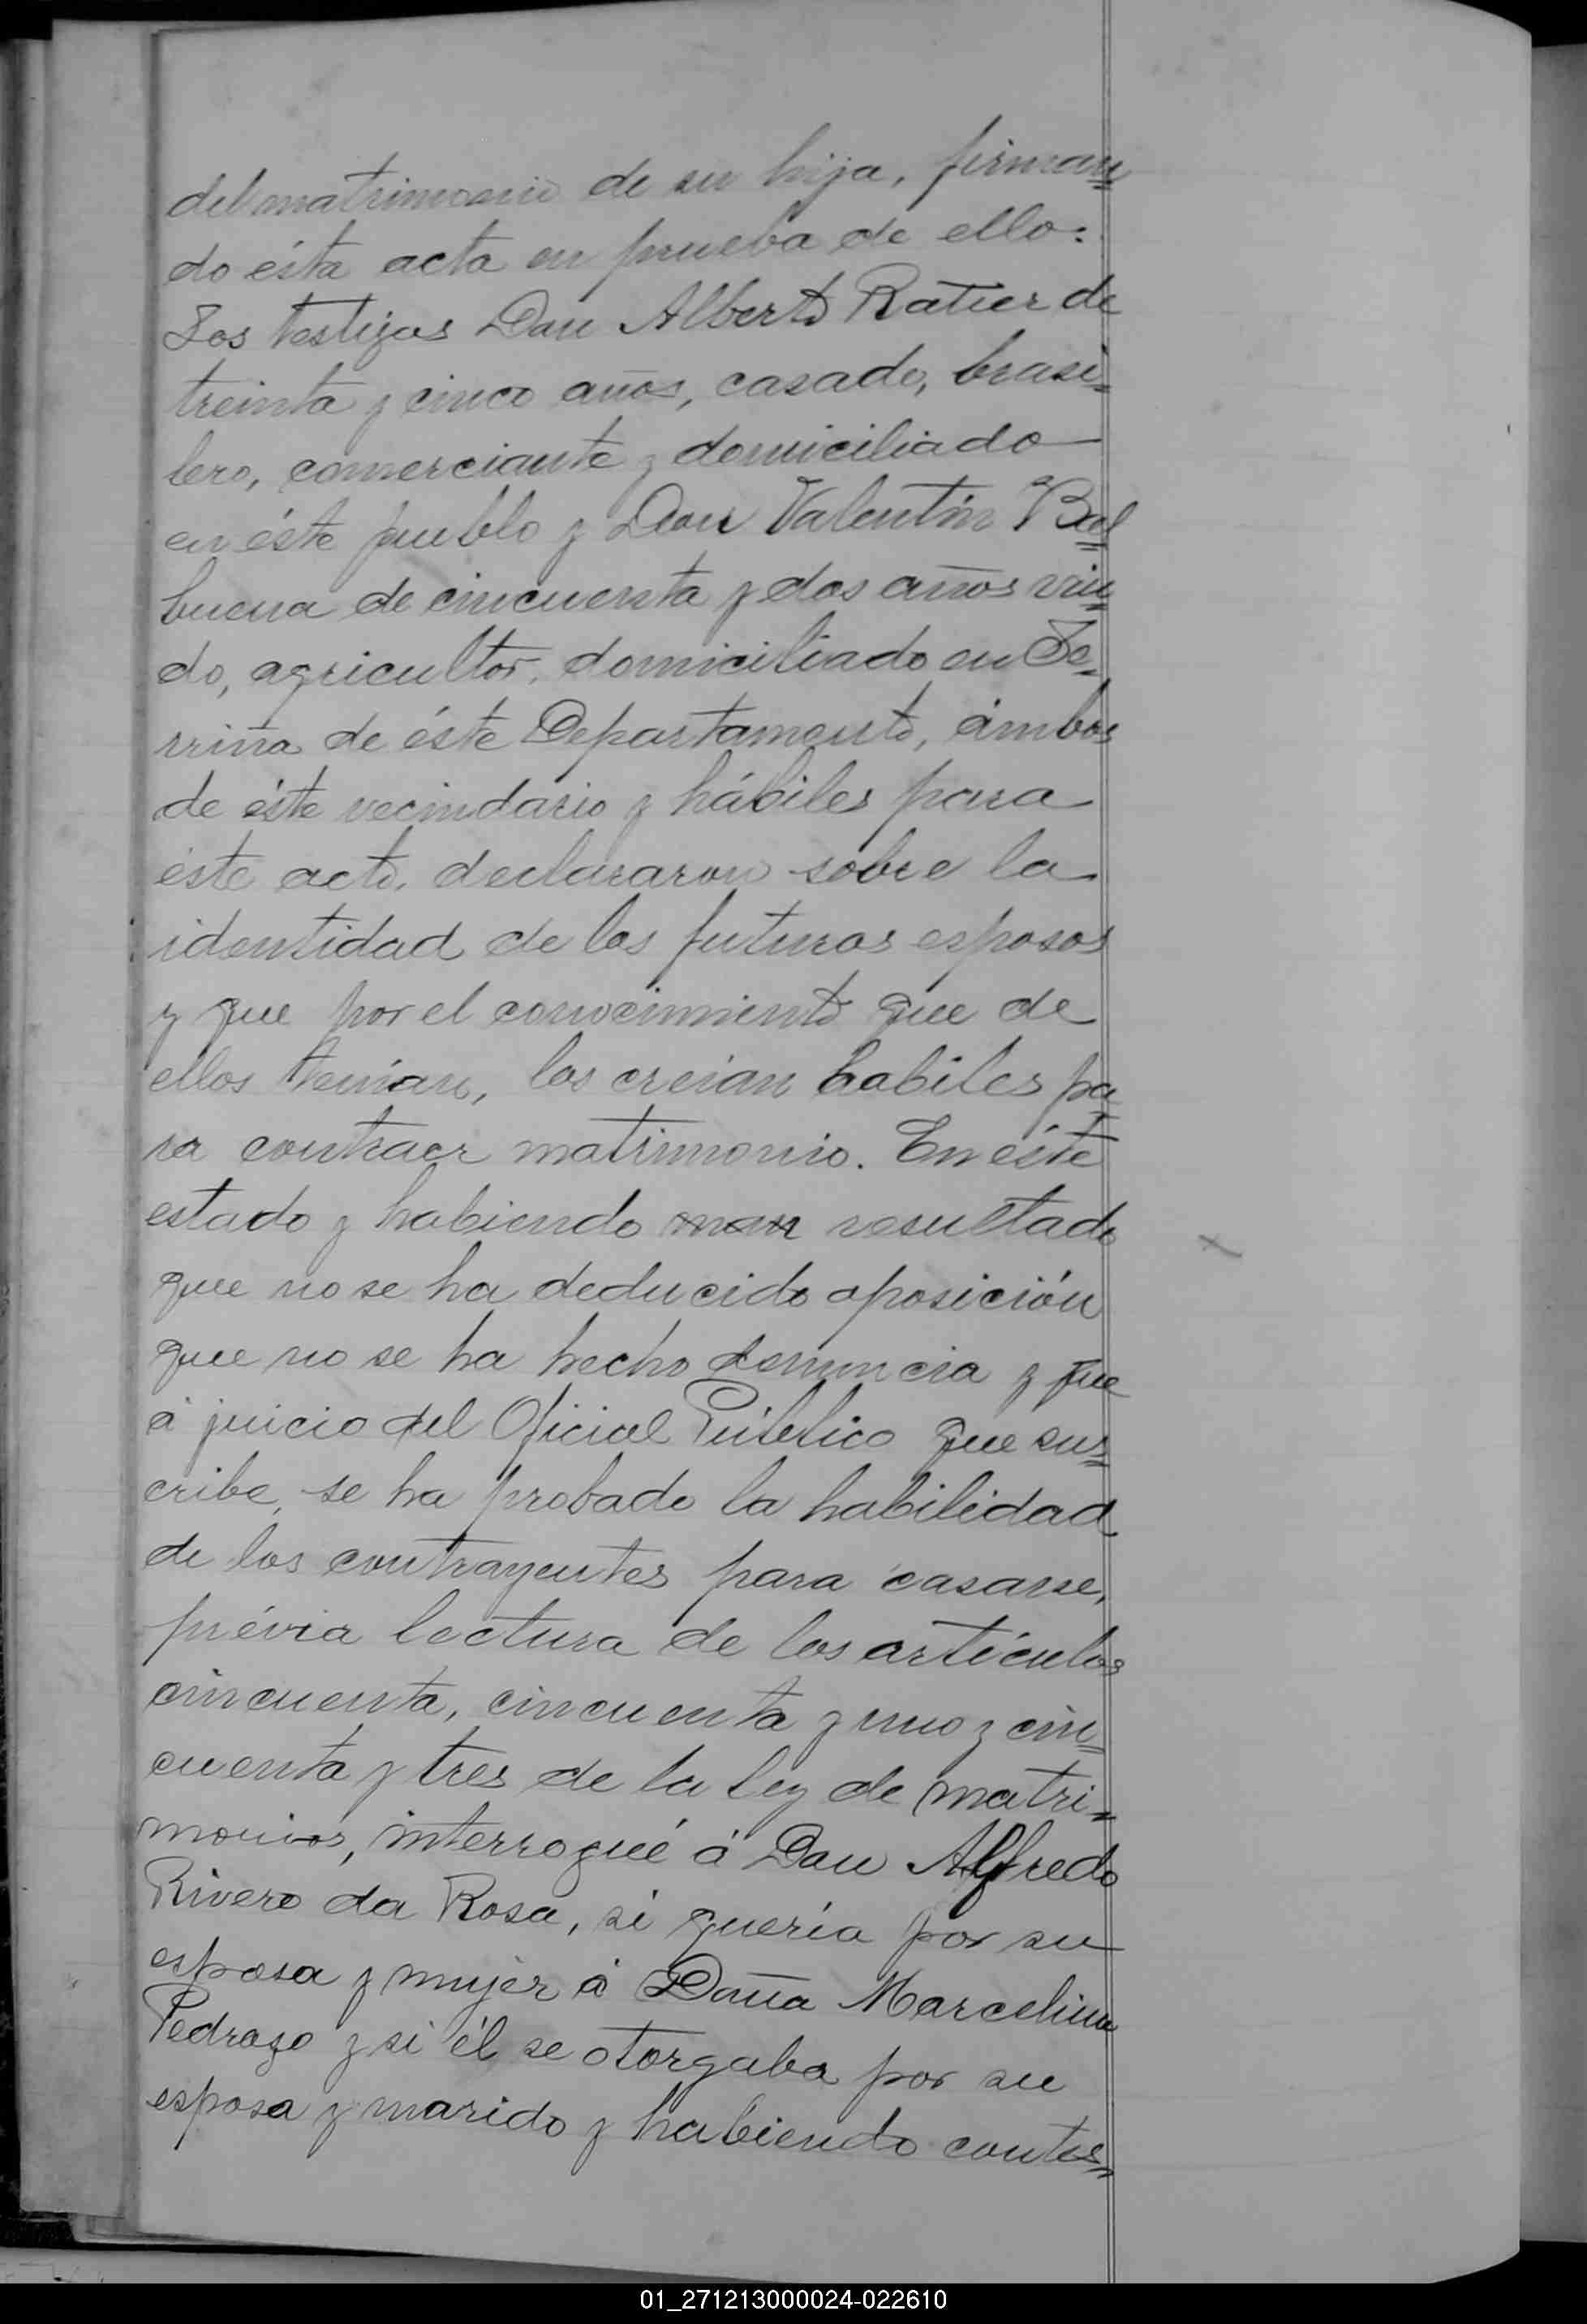 del matrimonio de su hija, firman=
do ésta acta en prueba de ello:
Los testigos Don Alberto Ratier de
treinta y cinco años, casado, brasi=
lero, comerciante y domiciliado
en éste pueblo y Don Valentín Bal=
buena de cincuenta y dos años viu=
do, agricultor, domiciliado en
de éste Departamento, ámbos
de éste vecindario y hábiles para
éste acto, declararon sobre la
identidad de los futuros esposos
y que por el conocimiento que de
ellos tenían, los creían habiles pa=
ra contraer matrimonio. En éste
estado y habiendo resultado
que no se ha deducido oposición
que no se ha hecho denuncia y que
á juicio del Oficial Público que sus=
cribe, se ha probado la habilidad
de los contrayentes para casarse,
prévia lectura de los artículos
cincuenta, cincuenta y uno y cin=
cuenta y tres de la ley de matri=
monios, interrogué á Don Alfredo
Rivero da Rosa, si quería por su
esposa y mujer á Doña Marcelina
Pedrozo y si él se otorgaba por su
esposa y marido y habiendo contes=
01_271213000024-022610